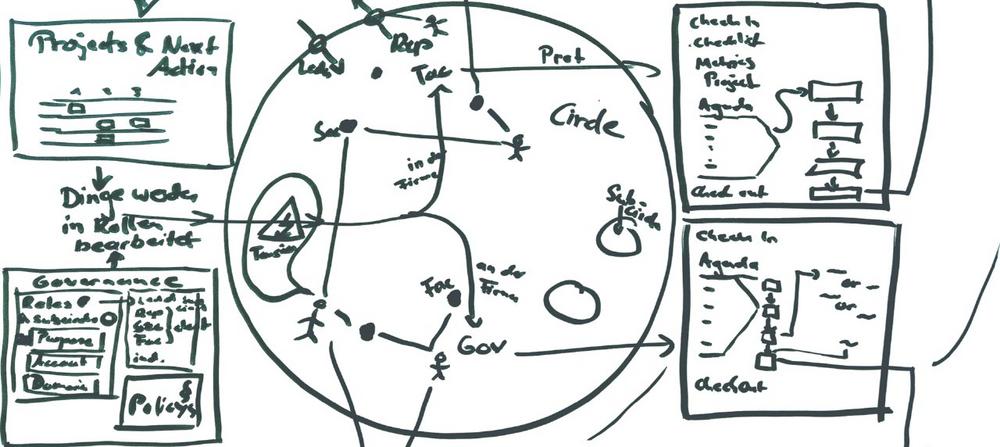 Projects & Next
Action
Dinge werden
in Rollen
bearbeitet
Governance
Roles
Subcircles
Purpose
Account
Domain
Rep
Sec
Fac
ind.
§
Policys
Lead
Rep
Tac
Prot
Sec
in der
Firma
Circle
Tension
Sub-
Circle
an der
Firma
Fac
Gov
Check In
Checklist
Metrics
Project
Agenda
Check out
Check In
Agenda
or
or
CheckOut